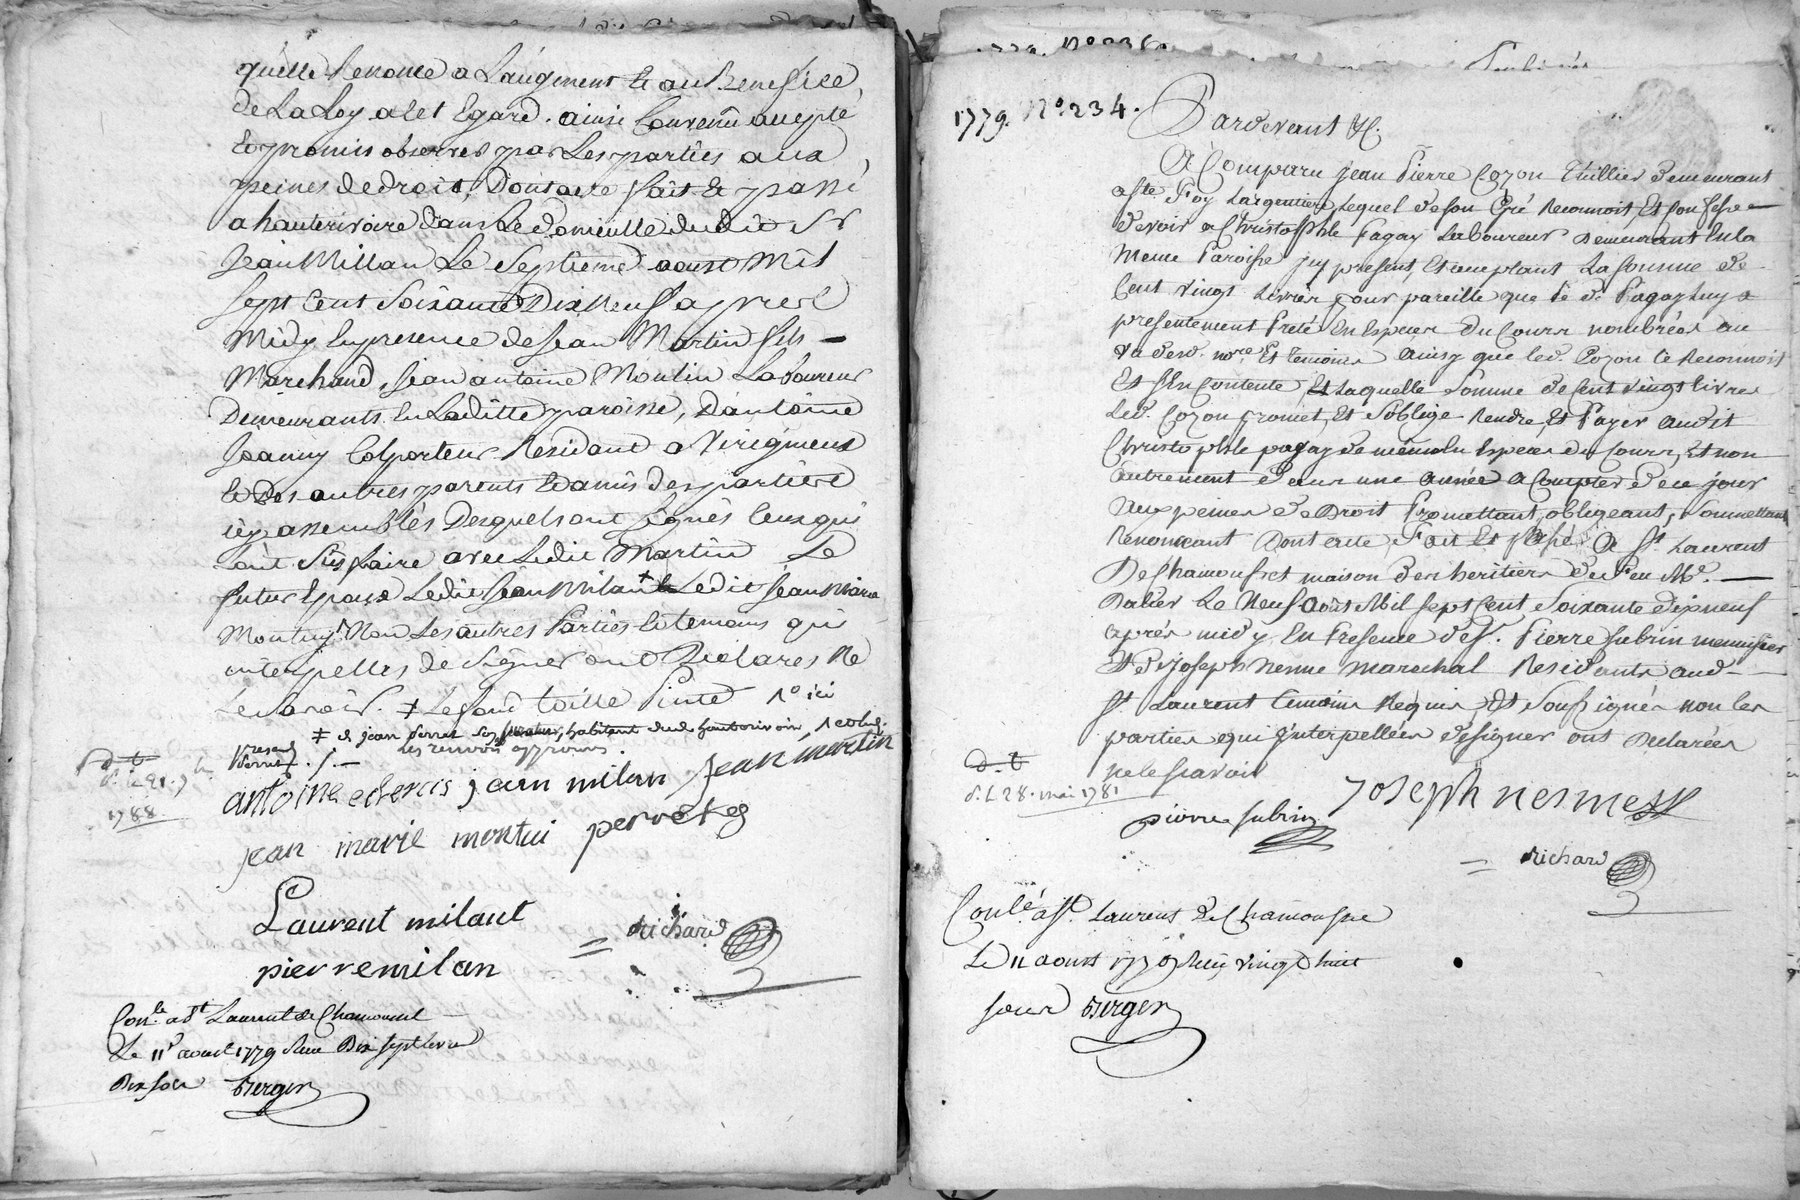 qu'elle Renonce a Laugment & au Benefice
de La Loy a cet Egard. ainsi Convenû accepté
& promis observer par Les parties aux
peines de droit, Dont acte fait & passé
a hauterivoire dans Le Domicille dudit Sr
Jean Millan Le Septieme aoust Mil
Sept Cent Soixante Dix Neuf apres
Midy En presence de Jean Martin fils
Marchand, Jean antoine Moulin Laboureur
Demeurants En Laditte paroisse, D'antoine
Joanny Colporteur Résidant a Virigneux
& Des autres parents & amis des parties
icy assemblés Desquels ont Signés Ceux qui
L'ont Sçu faire avec Ledit Martin Le
futur Epoux Ledit Jean Milan & Ledit Jean Marie
Montuy Non Les autres Parties & temoins qui
interpellés de Signer ont Declarés Ne
Le Savoir. ‡ Le fond taille Pinte 1º ici
‡ d Jean Perret habitant dud hauterivoire
Les renvois approuvés
D. t.
1788
antoine jean milan Jean martin
jean marie montui perret
Laurent milant
pierre milan
Richard
Conlé a St Laurent de Chamousset
Le 11e aoust 1779 Reçu Dix sept livres
Dix sols Berger
1779. Nº 234.
Pardevant &c.
A Comparu Jean Pierre Cozon Thillier demeurant
a Ste Foy Largentiere, Lequel de son Gré Reconnoit, Et Confesse
devoir a Christophle Fagay Laboureur Demeurant En la
Meme Paroisse, icy present, Et acceptant La somme de
Cent vingt Livres pour pareille que le d. Fagay Luy a
presentement Preté En Especes Du Cours nombrées au
Vu desd. nore Et Temoins ainsy que led. Cozon le Reconnoit
Et s'En Contente, Et Laquelle Somme de Cent vingt livres
Led. Cozon promet, Et s'oblige Rendre, Et Payer audit
Christophle Fagay de meme En Especes du Cours, Et non
autrement dans une année a Compter de ce jour
Aux peines de Droit Promettant, obligeant, Soumettant
Renonceant Dont acte, Fait Et passé A St. Laurent
De Chamousset maison des heritiers de feu Me.
Dalier Le Neuf Août Mil Sept Cent Soixante dix neuf
après midy, En Presence de Sr. Pierre Subrin menuisier
Et de Joseph Nesme marechal Residants aud
St. Laurent temoins Requis, Et Soussignés non les
parties qui Interpellées de signer ont Declarées
ne le sçavoir
D. t
d. L 28. mai 1781
Joseph nesme
pierre subrin
Richard
Conlé a St. Laurent de Chamousset
Le 11 aoust 1779 Reçu vingt huit
sous Berger